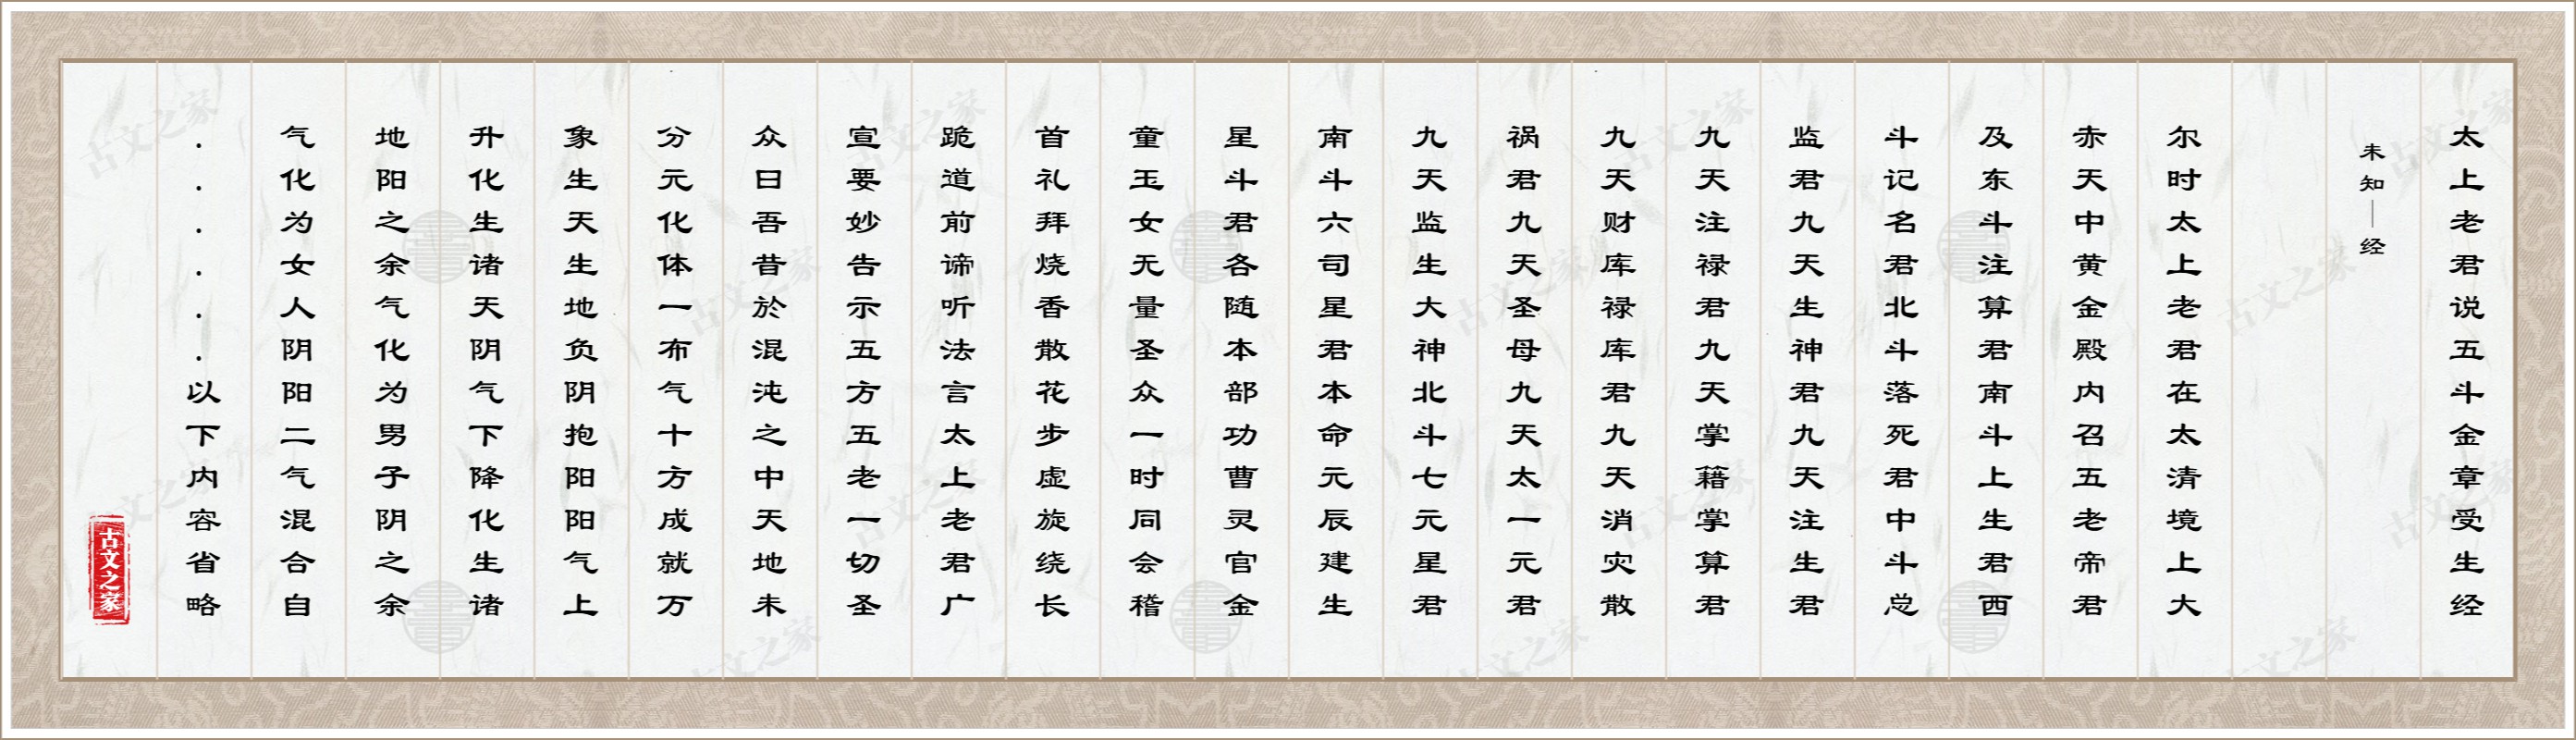 太上老君说五斗金章受生经
未知｜经
尔时太上老君在太清境上大
赤天中黄金殿内召五老帝君
及东斗注算君南斗上生君西
斗记名君北斗落死君中斗总
监君九天生神君九天注生君
九天注禄君九天掌籍掌算君
九天财库禄库君九天消灾散
祸君九天圣母九天太一元君
九天监生大神北斗七元星君
南斗六司星君本命元辰建生
星斗君各随本部功曹灵官金
童玉女无量圣众一时同会稽
首礼拜烧香散花步虚旋绕长
跪道前谛听法言太上老君广
宣要妙告示五方五老一切圣
众曰吾昔於混沌之中天地未
分元化体一布气十方成就万
象生天生地负阴抱阳阳气上
升化生诸天阴气下降化生诸
地阳之余气化为男子阴之余
气化为女人阴阳二气混合自
......以下内容省略
古文之家